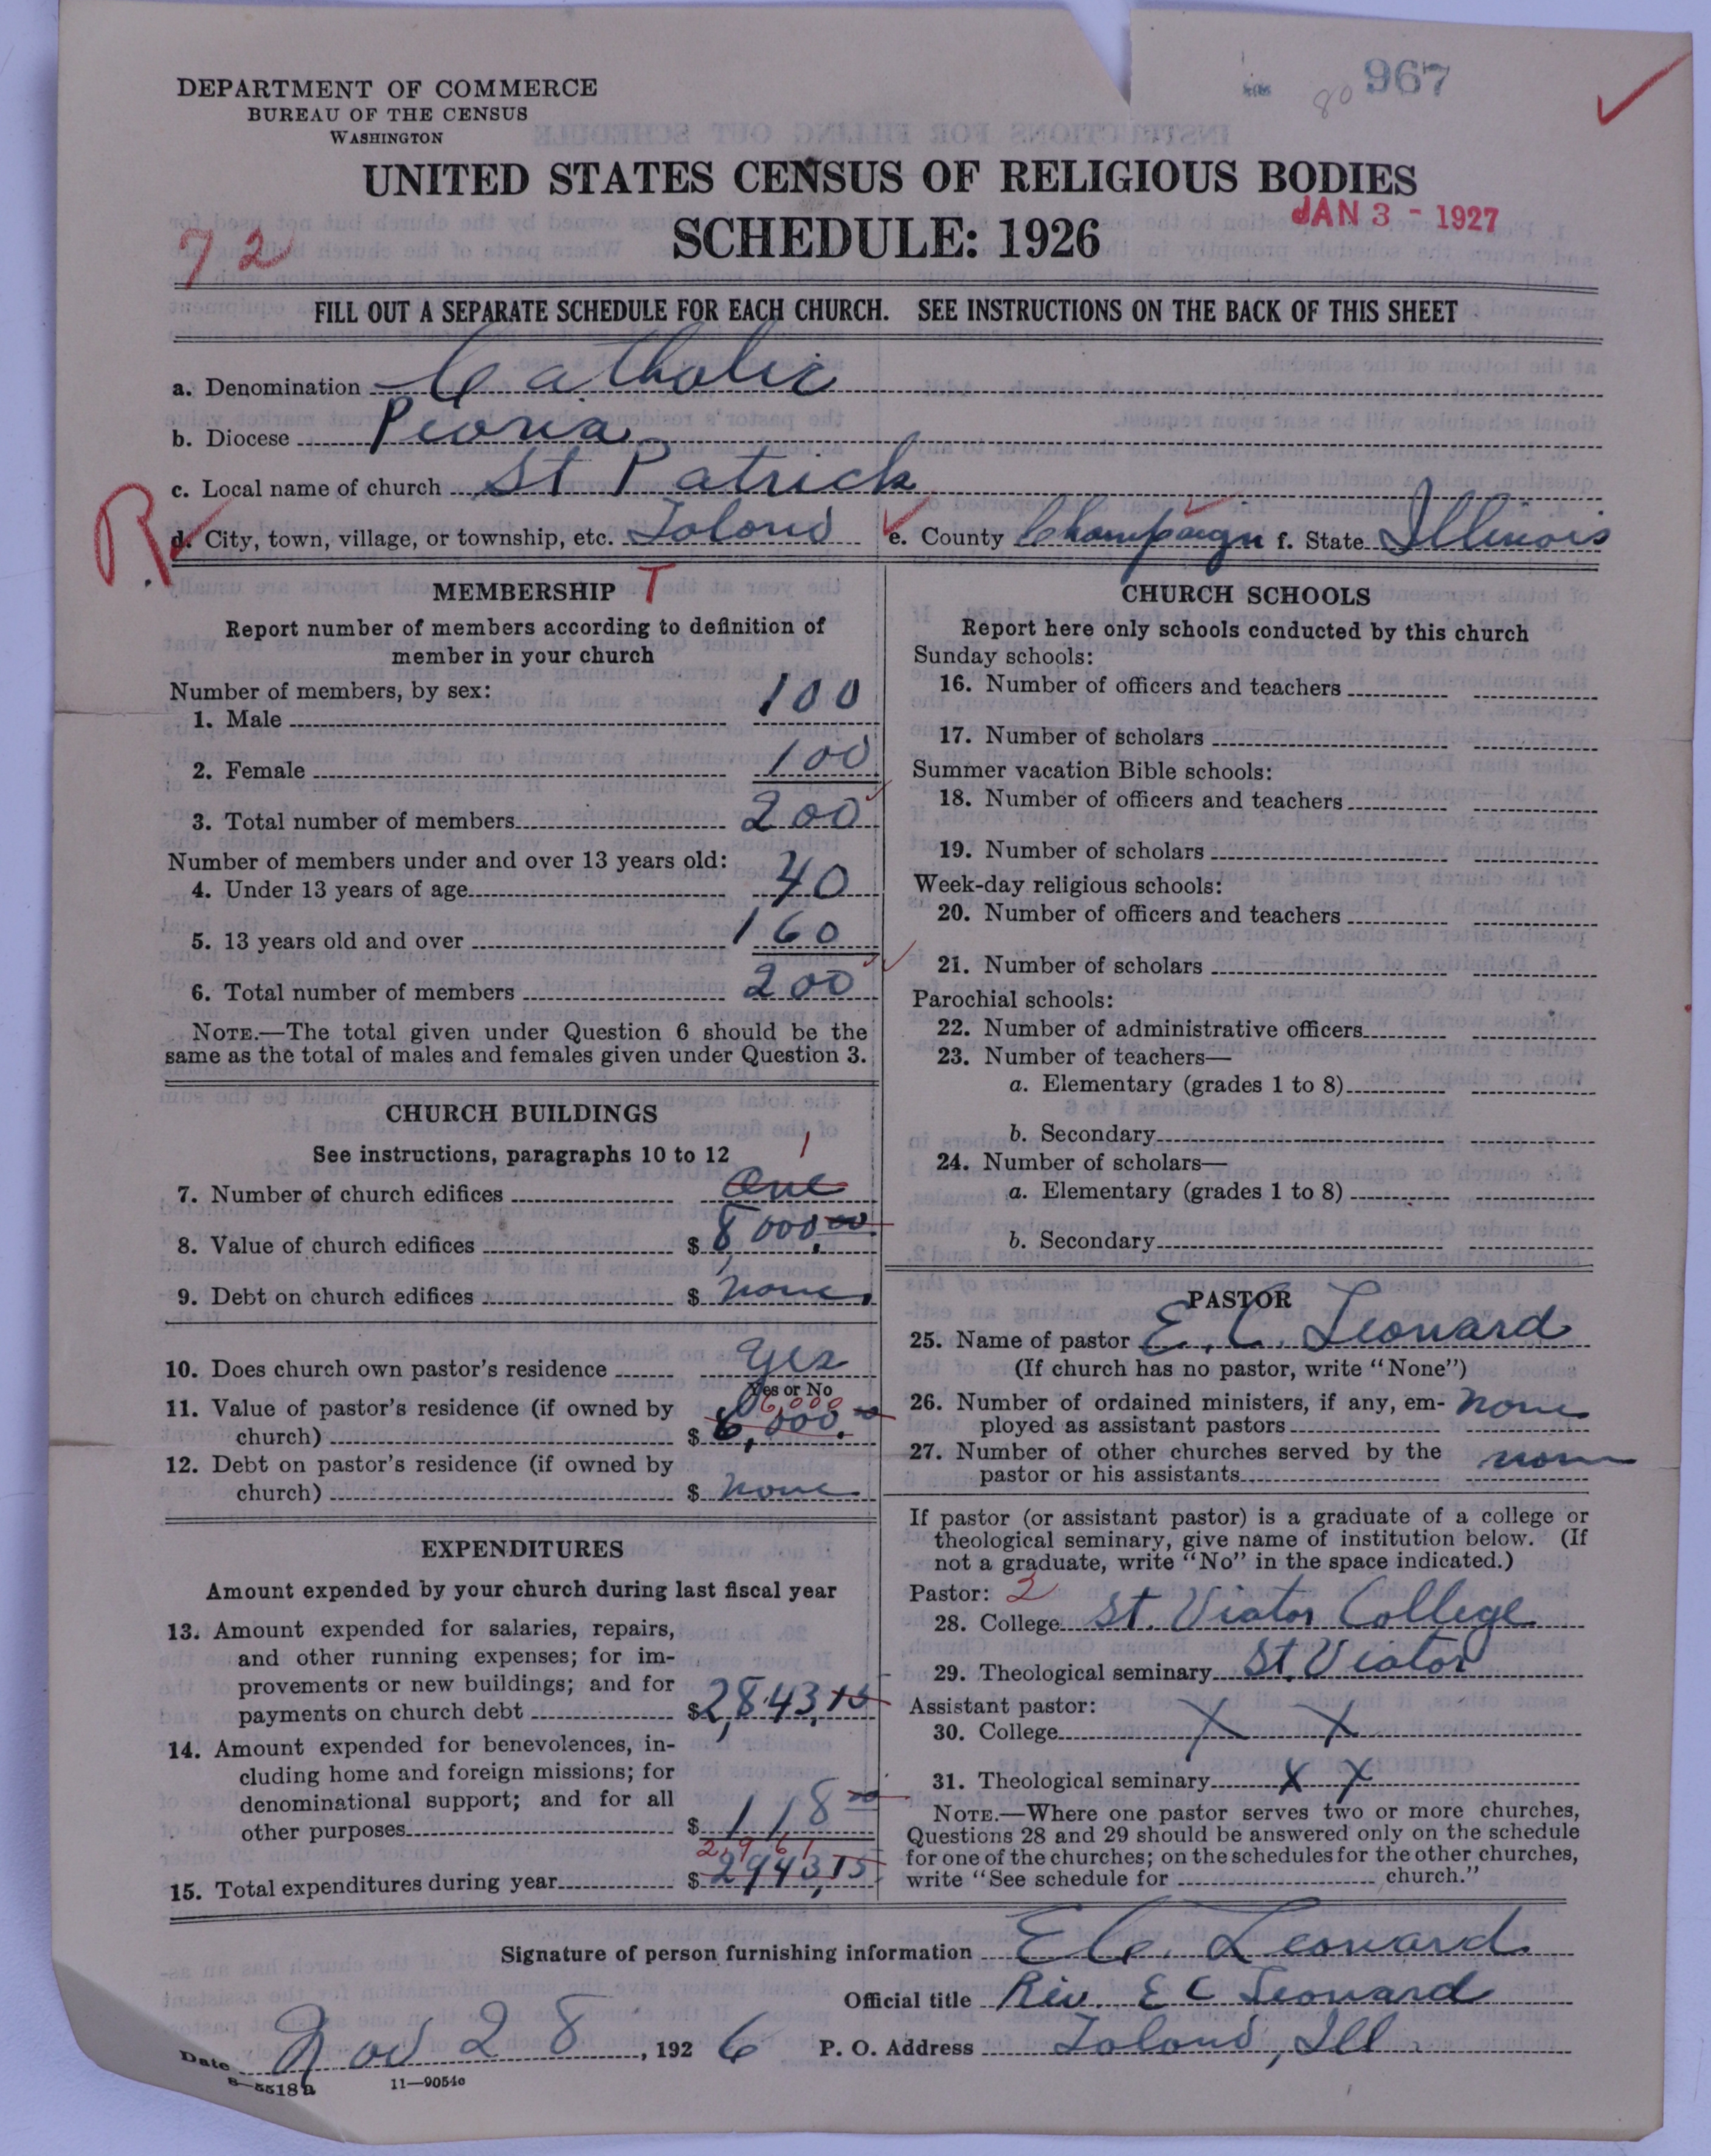 DEPARTMENT OF COMMERCE
BUREAU OF THE CENSUS
WASHINGTON
80 967
UNITED STATES CENSUS OF RELIGIOUS BODIES
SCHEDULE: 1926
JAN 3 - 1927
72
FILL OUT A SEPARATE SCHEDULE FOR EACH CHURCH. SEE INSTRUCTIONS ON THE BACK OF THIS SHEET
a. Denomination Catholic
b. Diocese Peoria
c. Local name of church St Patrick
R
d. City, town, village, or township, etc. Tolono e. County Champaign f. State Illinois
MEMBERSHIP T
Report number of members according to definition of
member in your church
Number of members, by sex:
1. Male 100
2. Female 100
3. Total number of members 200
Number of members under and over 13 years old:
4. Under 13 years of age 40
5. 13 years old and over 160
6. Total number of members 200
NOTE.—The total given under Question 6 should be the
same as the total of males and females given under Question 3.
CHURCH BUILDINGS
See instructions, paragraphs 10 to 12
1
7. Number of church edifices One
8. Value of church edifices $ 8,000.00
9. Debt on church edifices $ none
10. Does church own pastor's residence yes
Yes or No
6,000
11. Value of pastor's residence (if owned by
church) $ 6,000.00
12. Debt on pastor's residence (if owned by
church) $ none
EXPENDITURES
Amount expended by your church during last fiscal year
13. Amount expended for salaries, repairs,
and other running expenses; for im-
provements or new buildings; and for
payments on church debt $ 2,843.15
14. Amount expended for benevolences, in-
cluding home and foreign missions; for
denominational support; and for all
other purposes $ 118.00
2,961
15. Total expenditures during year $ 2943.15
CHURCH SCHOOLS
Report here only schools conducted by this church
Sunday schools:
16. Number of officers and teachers
17. Number of scholars
Summer vacation Bible schools:
18. Number of officers and teachers
19. Number of scholars
Week-day religious schools:
20. Number of officers and teachers
21. Number of scholars
Parochial schools:
22. Number of administrative officers
23. Number of teachers—
a. Elementary (grades 1 to 8)
b. Secondary
24. Number of scholars—
a. Elementary (grades 1 to 8)
b. Secondary
PASTOR
25. Name of pastor E. C. Leonard
(If church has no pastor, write "None")
26. Number of ordained ministers, if any, em-
ployed as assistant pastors none
27. Number of other churches served by the
pastor or his assistants none
If pastor (or assistant pastor) is a graduate of a college or
theological seminary, give name of institution below. (If
not a graduate, write "No" in the space indicated.)
Pastor: 2
28. College St. Viator College
29. Theological seminary St. Viator
Assistant pastor:
30. College X X
31. Theological seminary X X
NOTE.—Where one pastor serves two or more churches,
Questions 28 and 29 should be answered only on the schedule
for one of the churches; on the schedules for the other churches,
write "See schedule for church."
Signature of person furnishing information E C. Leonard
Official title Rev. E C Leonard
Date Nov 28, 1926 P. O. Address Tolono, Ill
8—5518a 11—9054c